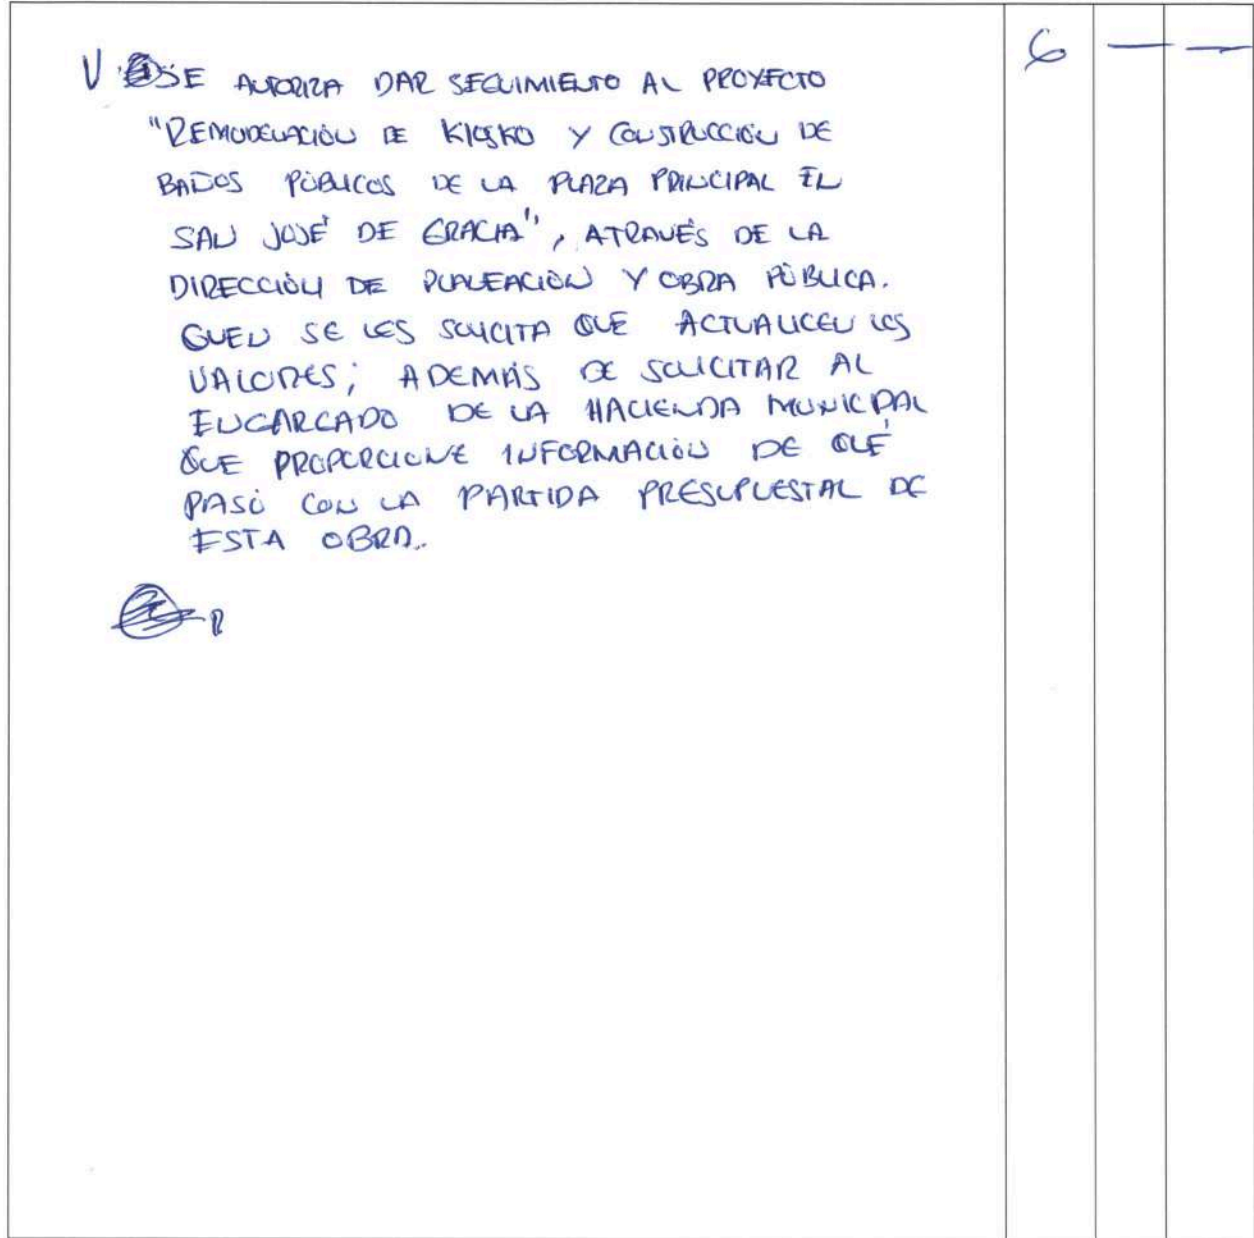 V SE AUTORIZA DAR SEGUIMIENTO AL PROYECTO 6 — —
"REMODELACIÓN DE KIOSKO Y CONSTRUCCIÓN DE
BAÑOS PÚBLICOS DE LA PLAZA PRINCIPAL EN
SAN JOSÉ DE GRACIA", ATRAVÉS DE LA
DIRECCIÓN DE PLANEACIÓN Y OBRA PÚBLICA.
QUEN SE LES SOLICITA QUE ACTUALICEN LOS
VALORES; ADEMÁS DE SOLICITAR AL
ENCARGADO DE LA HACIENDA MUNICIPAL
QUE PROPORCIONE INFORMACIÓN DE QUÉ
PASÓ CON LA PARTIDA PRESUPUESTAL DE
ESTA OBRA.